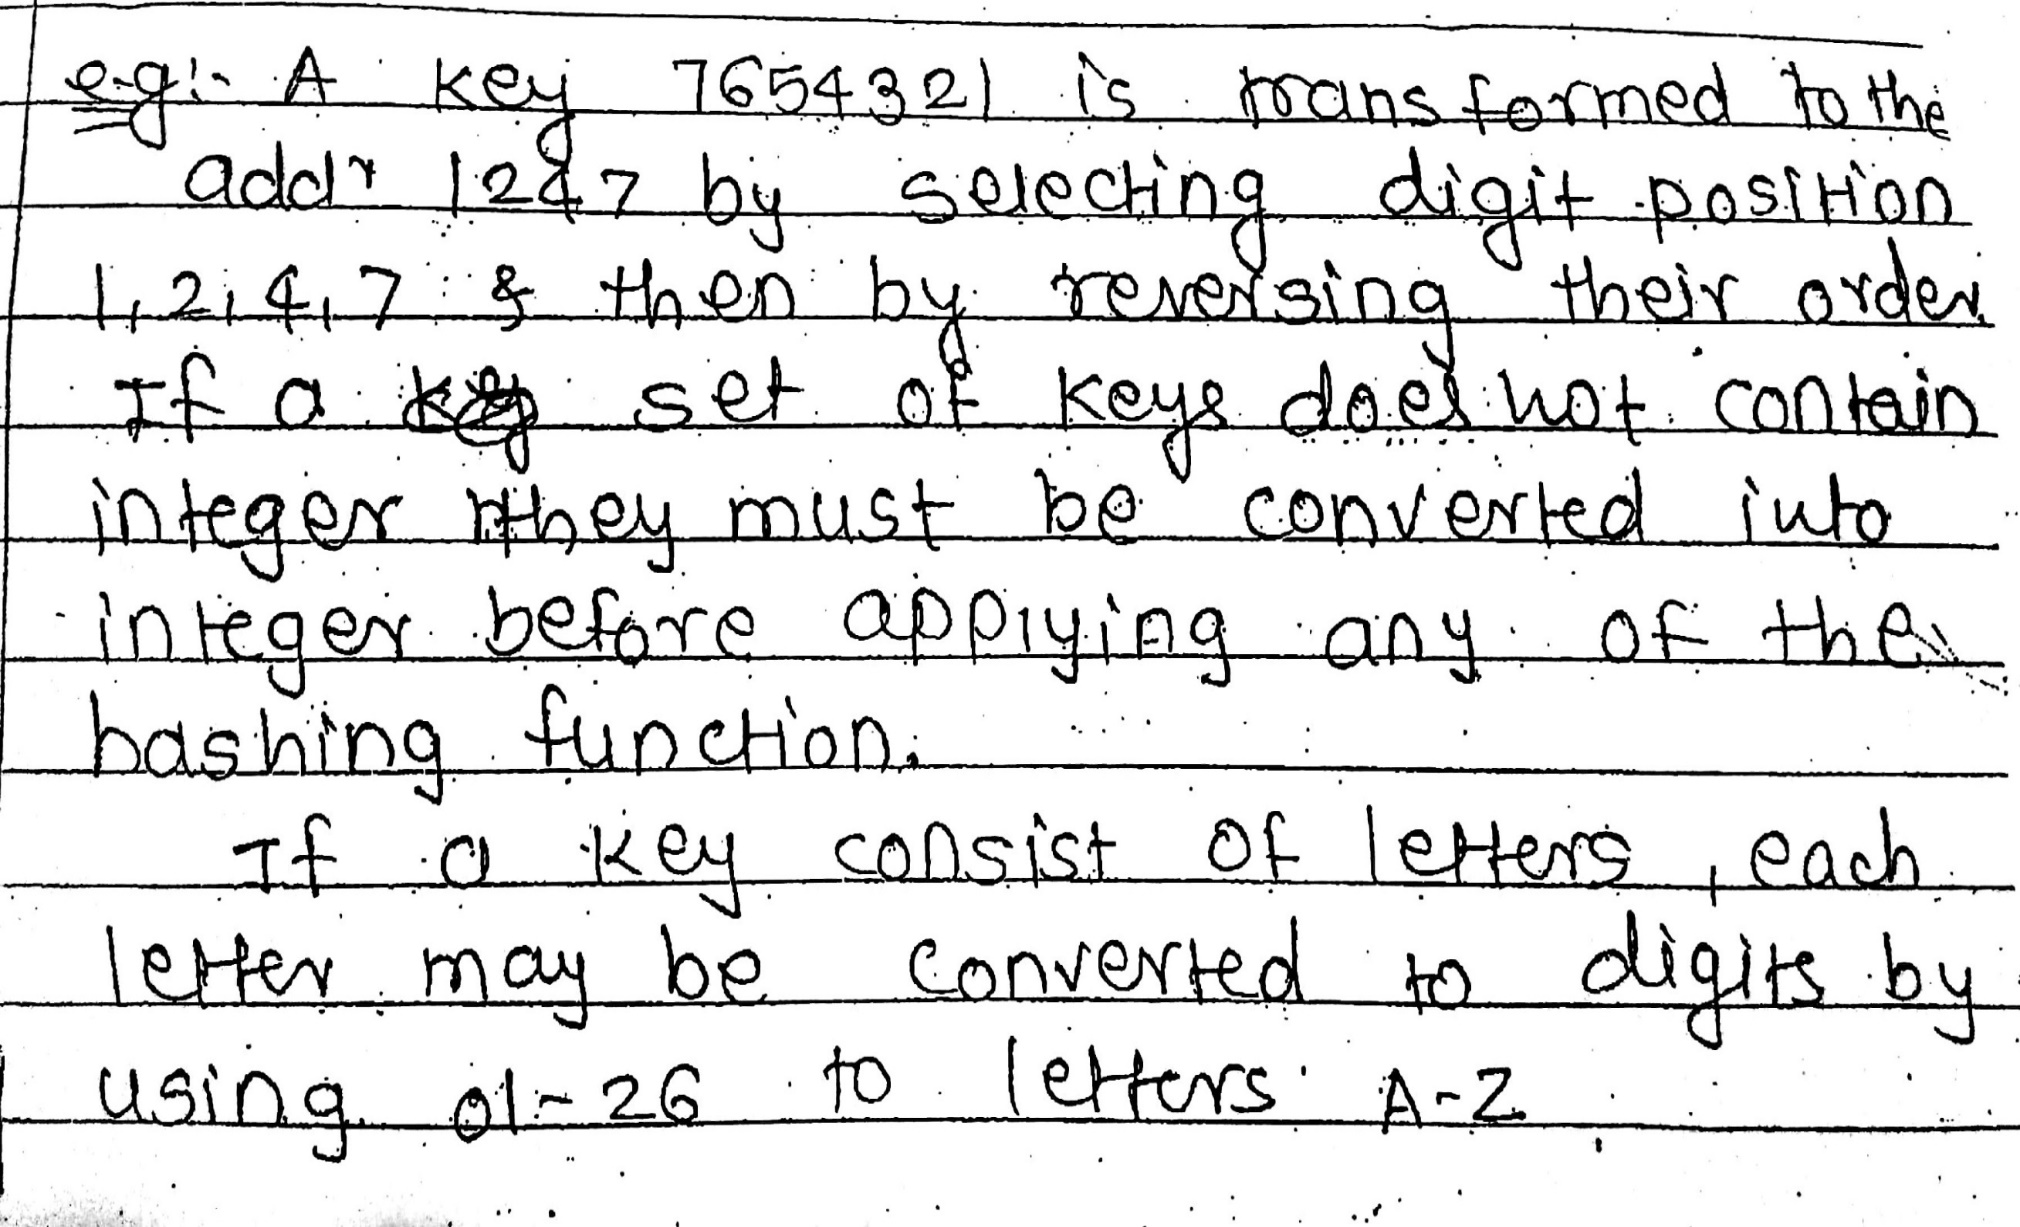 e.g:- A key 7654321 is transformed to the
addr 1247 by selecting digit position
1,2,4,7 & then by reversing their order.
If a set of keys does not contain
integer they must be converted into
integer before applying any of the
hashing function.
If a key consist of letters, each
letter may be converted to digits by
using 01-26 to letters A-Z